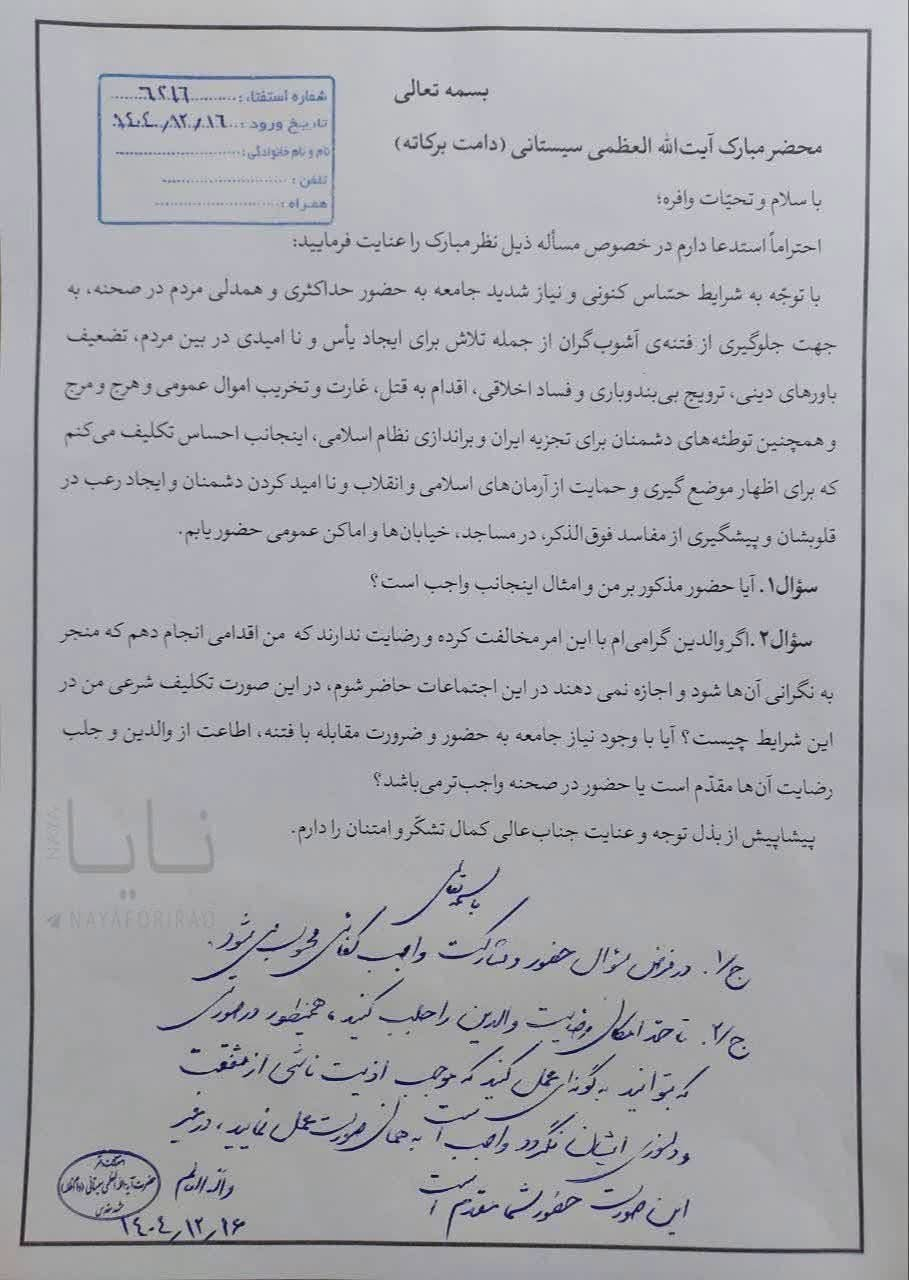 بسمه تعالی
شماره استفتاء : ٦٢١٦
تاریخ ورود : ١٤٠٤/١٢/١٦
نام و نام خانوادگی :
تلفن :
همراه :
محضر مبارک آیت‌الله العظمی سیستانی (دامت برکاته)
با سلام و تحیّات وافره؛
احتراماً استدعا دارم در خصوص مسأله ذیل نظر مبارک را عنایت فرمایید:
با توجّه به شرایط حسّاس کنونی و نیاز شدید جامعه به حضور حداکثری و همدلی مردم در صحنه، به
جهت جلوگیری از فتنه‌ی آشوب‌گران از جمله تلاش برای ایجاد یأس و نا امیدی در بین مردم، تضعیف
باورهای دینی، ترویج بی‌بندوباری و فساد اخلاقی، اقدام به قتل، غارت و تخریب اموال عمومی و هرج و مرج
و همچنین توطئه‌های دشمنان برای تجزیه ایران و براندازی نظام اسلامی، اینجانب احساس تکلیف می‌کنم
که برای اظهار موضع گیری و حمایت از آرمان‌های اسلامی و انقلاب و نا امید کردن دشمنان و ایجاد رعب در
قلوبشان و پیشگیری از مفاسد فوق‌الذکر، در مساجد، خیابان‌ها و اماکن عمومی حضور یابم.
سؤال۱. آیا حضور مذکور بر من و امثال اینجانب واجب است؟
سؤال۲. اگر والدین گرامی‌ام با این امر مخالفت کرده و رضایت ندارند که من اقدامی انجام دهم که منجر
به نگرانی آن‌ها شود و اجازه نمی دهند در این اجتماعات حاضر شوم، در این صورت تکلیف شرعی من در
این شرایط چیست؟ آیا با وجود نیاز جامعه به حضور و ضرورت مقابله با فتنه، اطاعت از والدین و جلب
رضایت آن‌ها مقدّم است یا حضور در صحنه واجب‌تر می‌باشد؟
پیشاپیش از بذل توجه و عنایت جناب‌عالی کمال تشکّر و امتنان را دارم.
نایا
NAYA
NAYAFORIRAQ
باسمه تعالی
ج/۱. در فرض سؤال حضور و مشارکت واجب کفائی محسوب می شود.
ج/۲. تا حد امکان رضایت والدین را جلب کنید، همینطور در صورتی
که بتوانید به گونه‌ای عمل کنید که موجب اذیت ناشی از شفقت
و دلسوزی ایشان نگردد واجب است به همان صورت عمل نمایید، در غیر
این صورت حضور شما مقدم است
والله العالم
حضرت آیة الله العظمی سیستانی
۱۴۰۴/۱۲/۱۶